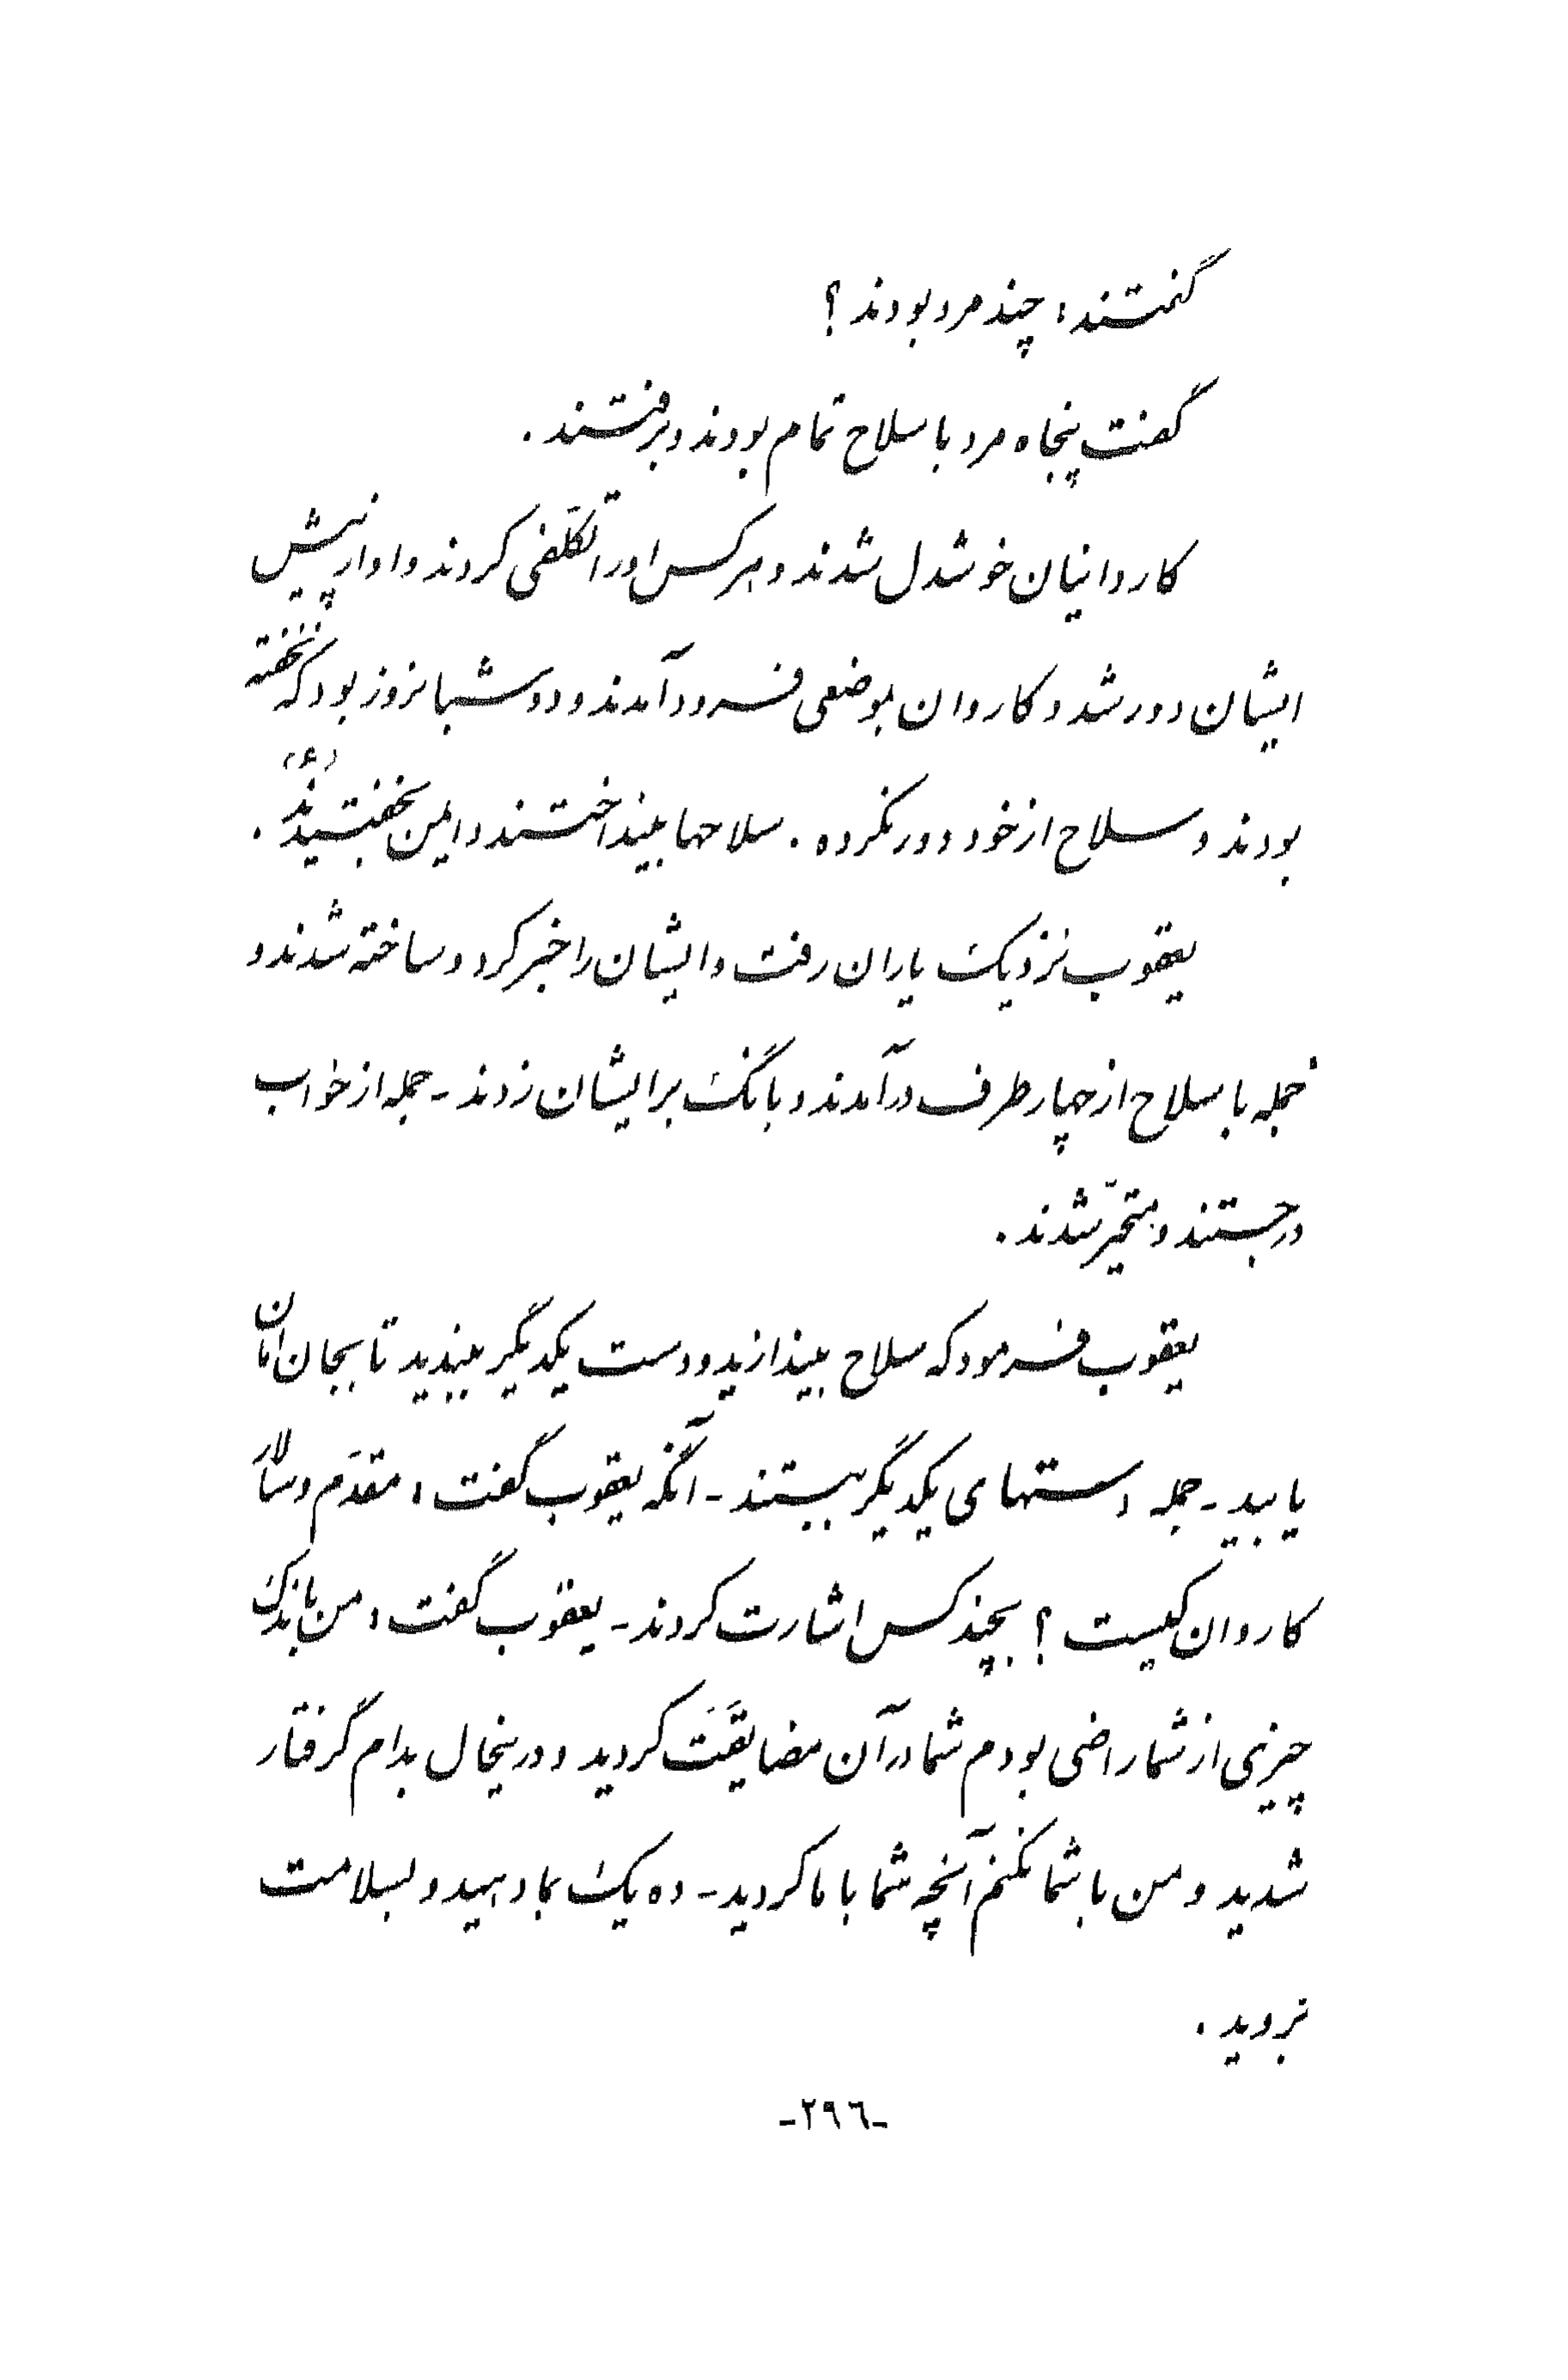 گفتند: چند مرد بودند؟
گفت پنجاه مرد با سلاح تمام بودند و برفتند.
کاروانیان خوشدل شدند و هر کس او را تکلّفی کردند و او از پیش
ایشان دور شد و کاروان بموضعی فرود آمدند و دو شبانروز بود که نخفته
بودند و سلاح از خود دور نکرده. سلاحها بینداختند و ایمن بخفتیدند(۶).
یعقوب نزدیک یاران رفت و ایشان را خبر کرد و ساخته شدند و
جمله با سلاح از چهار طرف درآمدند و بانگ بر ایشان زدند - جمله از خواب
درجستند و متحیّر شدند.
یعقوب فرمود که سلاح بیندازید و دست یکدیگر ببندید تا بجان امان
یابید - جمله دستهای یکدیگر ببستند - آنگه یعقوب گفت: مقدّم و سالار
کاروان کیست؟ بچند کس اشارت کردند - یعقوب گفت: من باندک
چیزی از شما راضی بودم شما در آن مضایقَت کردید و درینحال بدام گرفتار
شدید و من با شما نکنم آنچه شما با ما کردید - ده یک بما دهید و بسلامت
بروید.
-۲۹٦-